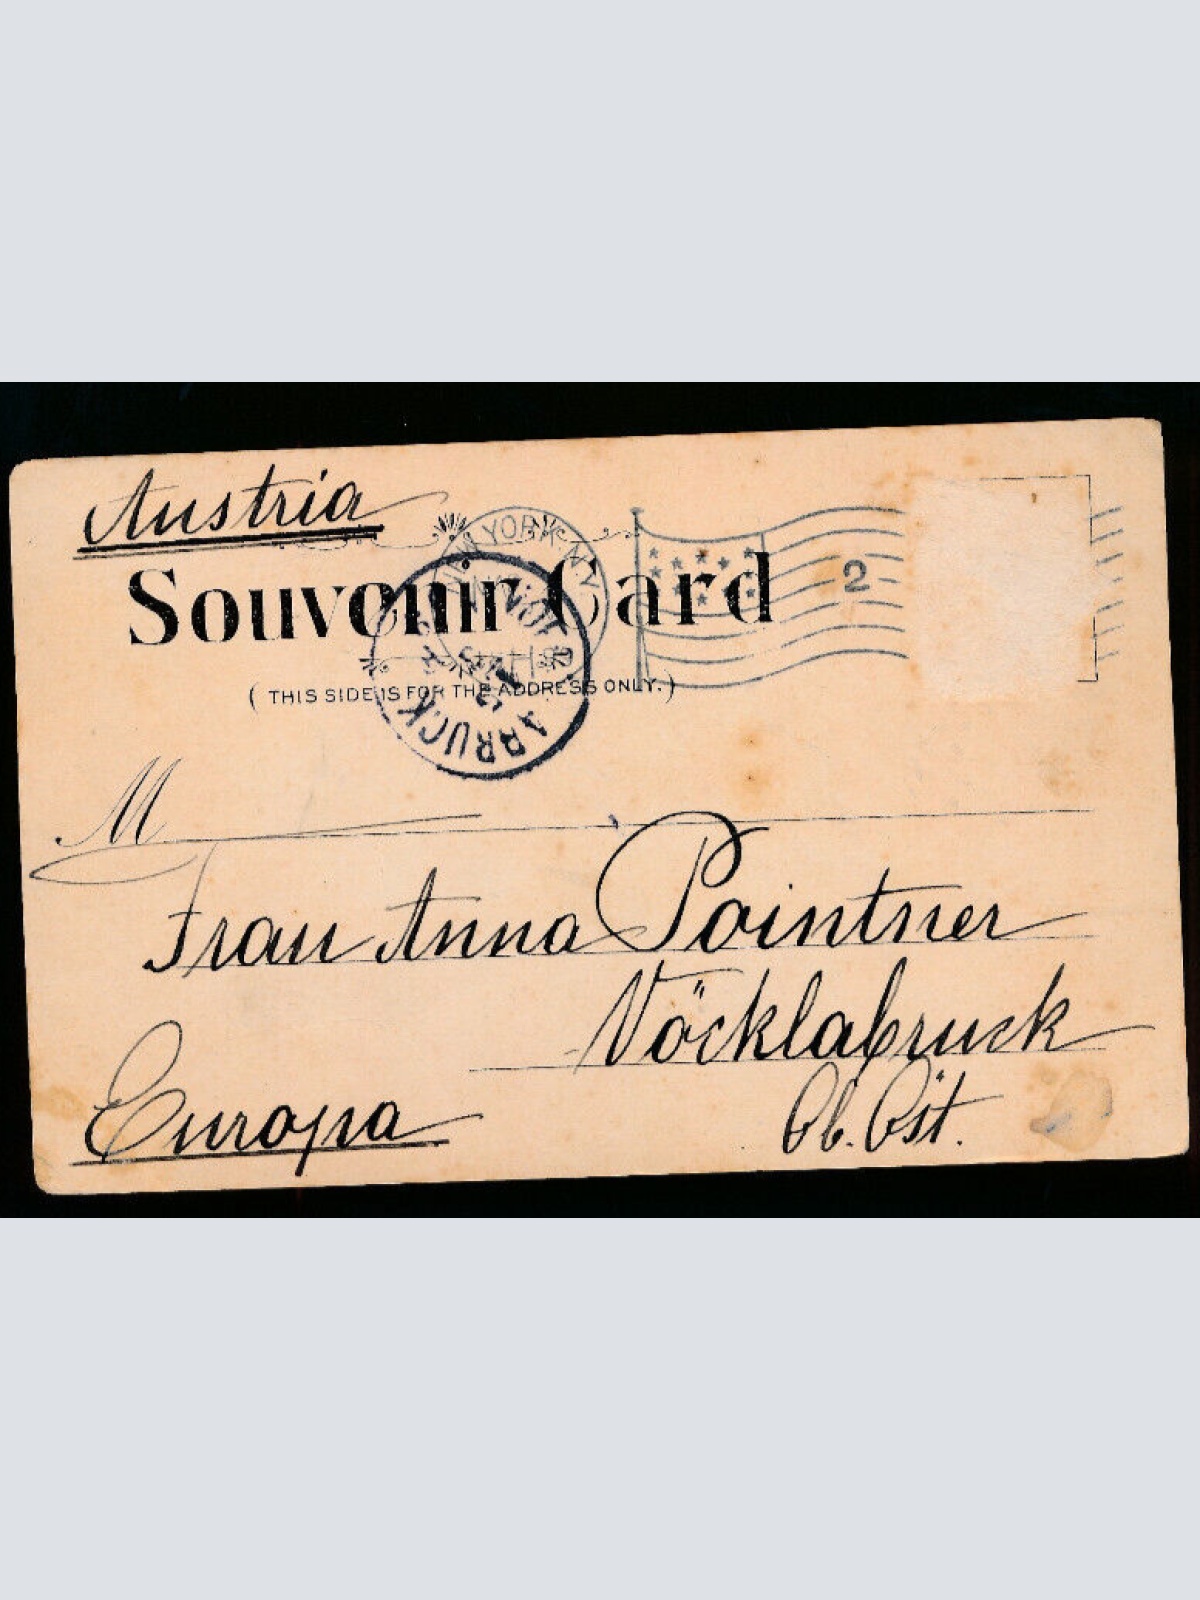 Austria
NEW YORK, N.Y.
Souvenir Card
2
(THIS SIDE IS FOR THE ADDRESS ONLY.)
M
Frau Anna Pointner
Vöcklabruck
Ob. Öst.
Europa